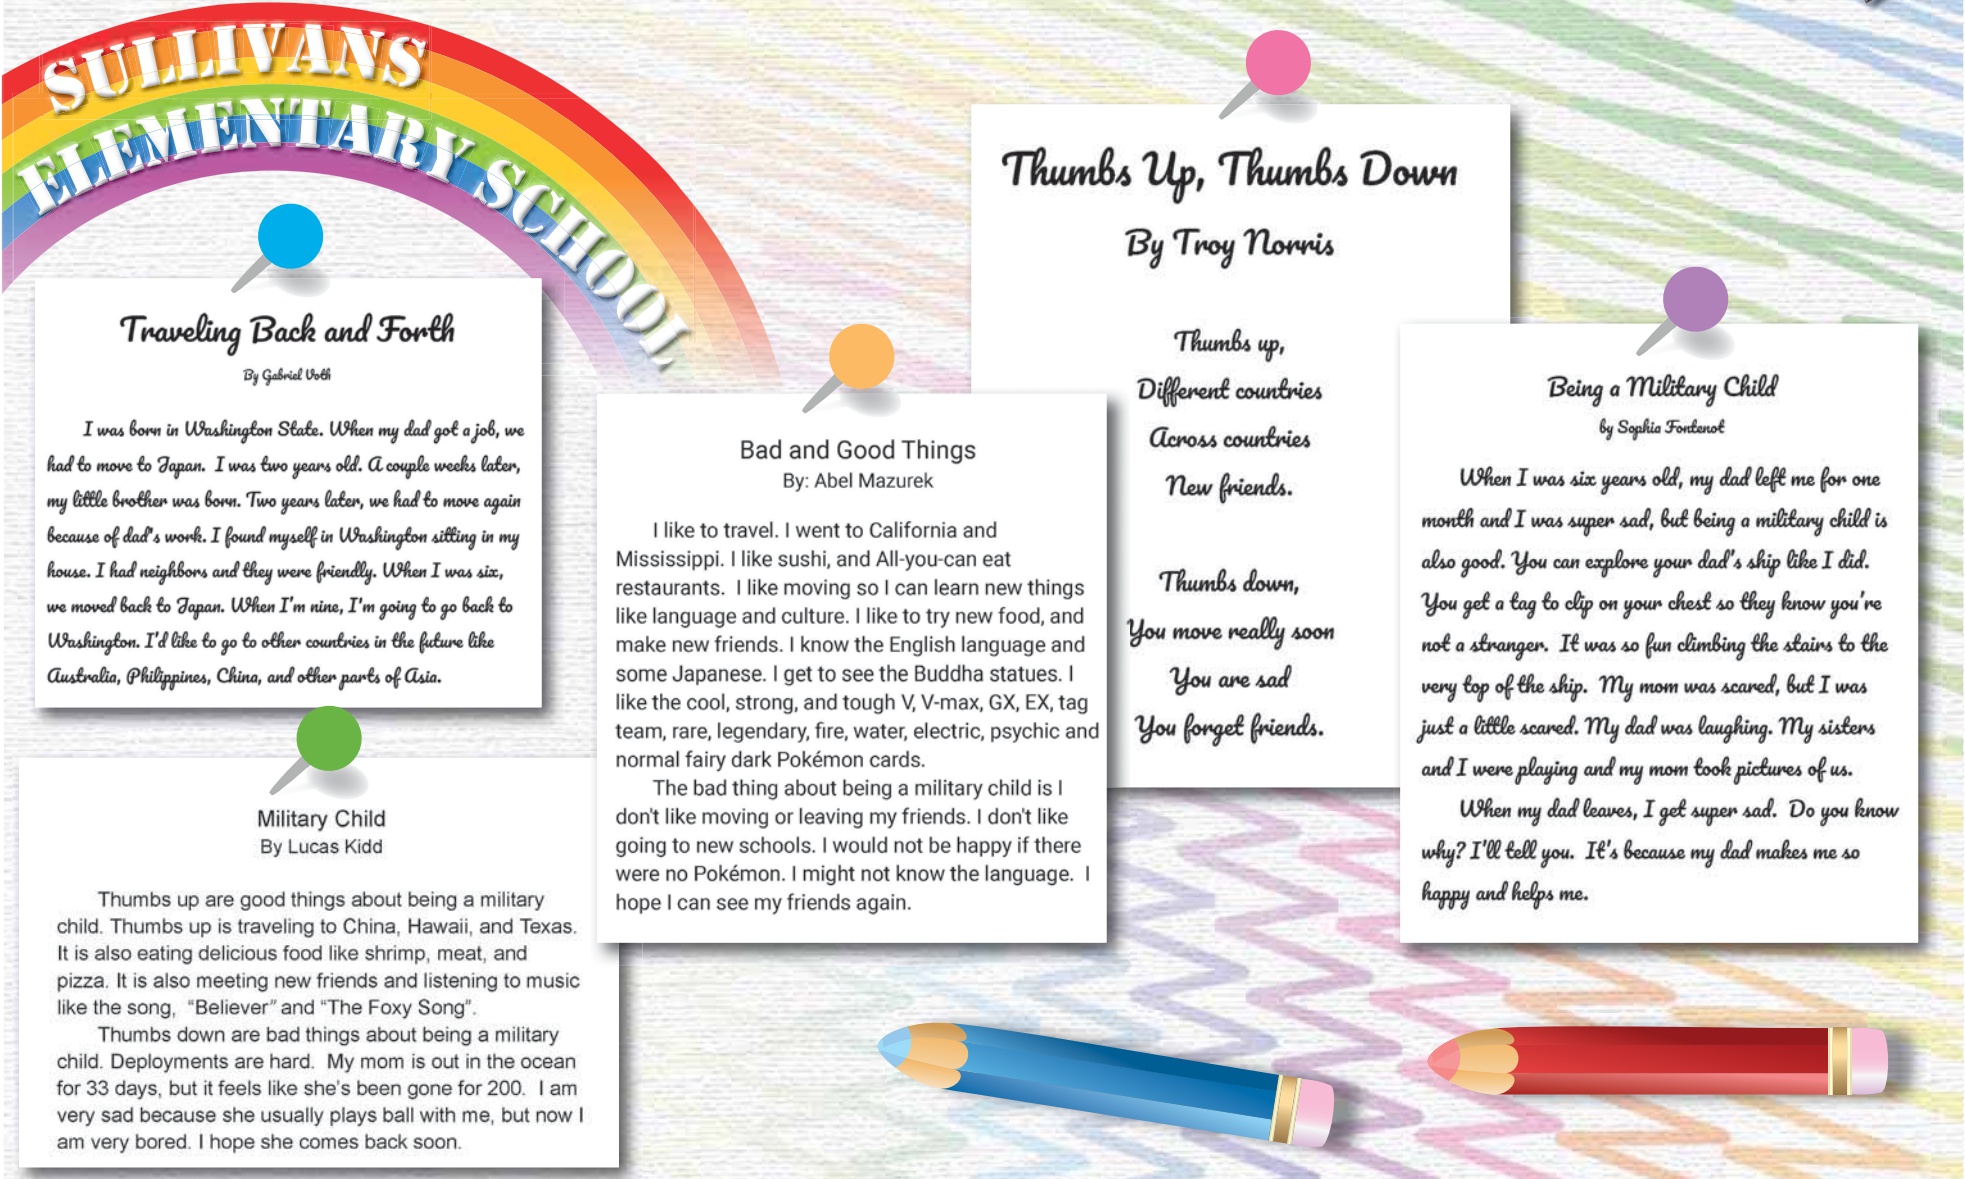 SULLIVANS
ELEMENTARY SCHOOL
Traveling Back and Forth
By Gabriel Voth
I was born in Washington State. When my dad got a job, we
had to move to Japan. I was two years old. A couple weeks later,
my little brother was born. Two years later, we had to move again
because of dad's work. I found myself in Washington sitting in my
house. I had neighbors and they were friendly. When I was six,
we moved back to Japan. When I'm nine, I'm going to go back to
Washington. I'd like to go to other countries in the future like
Australia, Philippines, China, and other parts of Asia.
Military Child
By Lucas Kidd
Thumbs up are good things about being a military
child. Thumbs up is traveling to China, Hawaii, and Texas.
It is also eating delicious food like shrimp, meat, and
pizza. It is also meeting new friends and listening to music
like the song, "Believer" and "The Foxy Song".
Thumbs down are bad things about being a military
child. Deployments are hard. My mom is out in the ocean
for 33 days, but it feels like she's been gone for 200. I am
very sad because she usually plays ball with me, but now I
am very bored. I hope she comes back soon.
Bad and Good Things
By: Abel Mazurek
I like to travel. I went to California and
Mississippi. I like sushi, and All-you-can eat
restaurants. I like moving so I can learn new things
like language and culture. I like to try new food, and
make new friends. I know the English language and
some Japanese. I get to see the Buddha statues. I
like the cool, strong, and tough V, V-max, GX, EX, tag
team, rare, legendary, fire, water, electric, psychic and
normal fairy dark Pokémon cards.
The bad thing about being a military child is I
don't like moving or leaving my friends. I don't like
going to new schools. I would not be happy if there
were no Pokémon. I might not know the language. I
hope I can see my friends again.
Thumbs Up, Thumbs Down
By Troy Norris
Thumbs up,
Different countries
Across countries
New friends.
Thumbs down,
You move really soon
You are sad
You forget friends.
Being a Military Child
by Sophia Fontenot
When I was six years old, my dad left me for one
month and I was super sad, but being a military child is
also good. You can explore your dad's ship like I did.
You get a tag to clip on your chest so they know you're
not a stranger. It was so fun climbing the stairs to the
very top of the ship. My mom was scared, but I was
just a little scared. My dad was laughing. My sisters
and I were playing and my mom took pictures of us.
When my dad leaves, I get super sad. Do you know
why? I'll tell you. It's because my dad makes me so
happy and helps me.